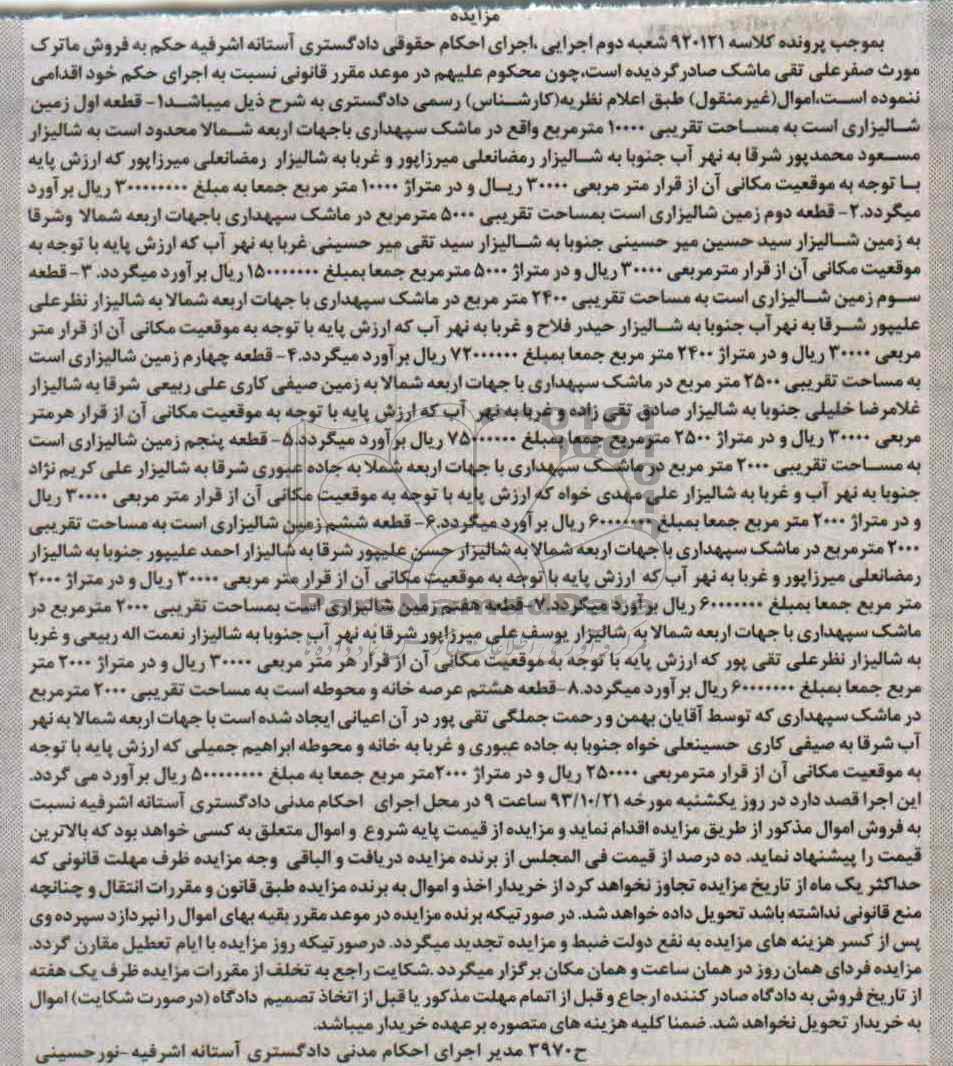 مزایده
بموجب پرونده کلاسه ۹۲۰۱۲۱ شعبه دوم اجرایی ،اجرای احکام حقوقی دادگستری آستانه اشرفیه حکم به فروش ماترک
مورث صفرعلی تقی ماشک صادرگردیده است،چون محکوم علیهم در موعد مقرر قانونی نسبت به اجرای حکم خود اقدامی
ننموده است،اموال(غیرمنقول) طبق اعلام نظریه(کارشناس) رسمی دادگستری به شرح ذیل میباشد۱- قطعه اول زمین
شالیزاری است به مساحت تقریبی ۱۰۰۰۰ مترمربع واقع در ماشک سپهداری باجهات اربعه شمالا محدود است به شالیزار
مسعود محمدپور شرقا به نهر آب جنوبا به شالیزار رمضانعلی میرزاپور و غربا به شالیزار رمضانعلی میرزاپور که ارزش پایه
با توجه به موقعیت مکانی آن از قرار متر مربعی ۳۰۰۰۰ ریال و در متراژ ۱۰۰۰۰ متر مربع جمعا به مبلغ ۳۰۰۰۰۰۰۰۰ ریال برآورد
میگردد.۲- قطعه دوم زمین شالیزاری است بمساحت تقریبی ۵۰۰۰ مترمربع در ماشک سپهداری باجهات اربعه شمالا وشرقا
به زمین شالیزار سید حسین میر حسینی جنوبا به شالیزار سید تقی میر حسینی غربا به نهر آب که ارزش پایه با توجه به
موقعیت مکانی آن از قرار مترمربعی ۳۰۰۰۰ ریال و در متراژ ۵۰۰۰ مترمربع جمعا بمبلغ ۱۵۰۰۰۰۰۰۰ ریال برآورد میگردد. ۳- قطعه
سوم زمین شالیزاری است به مساحت تقریبی ۲۴۰۰ متر مربع در ماشک سپهداری با جهات اربعه شمالا به شالیزار نظرعلی
علیپور شرقا به نهرآب جنوبا به شالیزار حیدر فلاح و غربا به نهر آب که ارزش پایه با توجه به موقعیت مکانی آن از قرار متر
مربعی ۳۰۰۰۰ ریال و در متراژ ۲۴۰۰ متر مربع جمعا بمبلغ ۷۲۰۰۰۰۰۰ ریال برآورد میگردد.۴- قطعه چهارم زمین شالیزاری است
به مساحت تقریبی ۲۵۰۰ متر مربع در ماشک سپهداری با جهات اربعه شمالا به زمین صیفی کاری علی ربیعی شرقا به شالیزار
غلامرضا خلیلی جنوبا به شالیزار صادق تقی زاده و غربا به نهر آب که ارزش پایه با توجه به موقعیت مکانی آن از قرار هرمتر
مربعی ۳۰۰۰۰ ریال و در متراژ ۲۵۰۰ مترمربع جمعا بمبلغ ۷۵۰۰۰۰۰۰ ریال برآورد میگردد.۵- قطعه پنجم زمین شالیزاری است
به مساحت تقریبی ۲۰۰۰ متر مربع در ماشک سپهداری با جهات اربعه شملا به جاده عبوری شرقا به شالیزار علی کریم نژاد
جنوبا به نهر آب و غربا به شالیزار علی مهدی خواه که ارزش پایه با توجه به موقعیت مکانی آن از قرار متر مربعی ۳۰۰۰۰ ریال
و در متراژ ۲۰۰۰ متر مربع جمعا بمبلغ ۶۰۰۰۰۰۰۰ ریال برآورد میگردد.۶- قطعه ششم زمین شالیزاری است به مساحت تقریبی
۲۰۰۰ مترمربع در ماشک سپهداری با جهات اربعه شمالا به شالیزار حسن علیپور شرقا به شالیزار احمد علیپور جنوبا به شالیزار
رمضانعلی میرزاپور و غربا به نهر آب که ارزش پایه با توجه به موقعیت مکانی آن از قرار متر مربعی ۳۰۰۰۰ ریال و در متراژ ۲۰۰۰
متر مربع جمعا بمبلغ ۶۰۰۰۰۰۰۰ ریال برآورد میگردد.۷- قطعه هفتم زمین شالیزاری است بمساحت تقریبی ۲۰۰۰ مترمربع در
ماشک سپهداری با جهات اربعه شمالا به شالیزار یوسف علی میرزاپور شرقا به نهر آب جنوبا به شالیزار نعمت اله ربیعی و غربا
به شالیزار نظرعلی تقی پور که ارزش پایه با توجه به موقعیت مکانی آن از قرار هر متر مربعی ۳۰۰۰۰ ریال و در متراژ ۲۰۰۰ متر
مربع جمعا بمبلغ ۶۰۰۰۰۰۰۰ ریال برآورد میگردد.۸-قطعه هشتم عرصه خانه و محوطه است به مساحت تقریبی ۲۰۰۰ مترمربع
در ماشک سپهداری که توسط آقایان بهمن و رحمت جملگی تقی پور در آن اعیانی ایجاد شده است با جهات اربعه شمالا به نهر
آب شرقا به صیفی کاری حسینعلی خواه جنوبا به جاده عبوری و غربا به خانه و محوطه ابراهیم جمیلی که ارزش پایه با توجه
به موقعیت مکانی آن از قرار مترمربعی ۲۵۰۰۰۰ ریال و در متراژ ۲۰۰۰متر مربع جمعا به مبلغ ۵۰۰۰۰۰۰۰۰ ریال برآورد می گردد.
این اجرا قصد دارد در روز یکشنبه مورخه ۹۳/۱۰/۲۱ ساعت ۹ در محل اجرای احکام مدنی دادگستری آستانه اشرفیه نسبت
به فروش اموال مذکور از طریق مزایده اقدام نماید و مزایده از قیمت پایه شروع و اموال متعلق به کسی خواهد بود که بالاترین
قیمت را پیشنهاد نماید. ده درصد از قیمت فی المجلس از برنده مزایده دریافت و الباقی وجه مزایده ظرف مهلت قانونی که
حداکثر یک ماه از تاریخ مزایده تجاوز نخواهد کرد از خریدار اخذ و اموال به برنده مزایده طبق قانون و مقررات انتقال و چنانچه
منع قانونی نداشته باشد تحویل داده خواهد شد. در صورتیکه برنده مزایده در موعد مقرر بقیه بهای اموال را نپردازد سپرده وی
پس از کسر هزینه های مزایده به نفع دولت ضبط و مزایده تجدید میگردد. درصورتیکه روز مزایده با ایام تعطیل مقارن گردد.
مزایده فردای همان روز در همان ساعت و همان مکان برگزار میگردد .شکایت راجع به تخلف از مقررات مزایده ظرف یک هفته
از تاریخ فروش به دادگاه صادر کننده ارجاع و قبل از اتمام مهلت مذکور یا قبل از اتخاذ تصمیم دادگاه (درصورت شکایت) اموال
به خریدار تحویل نخواهد شد. ضمنا کلیه هزینه های متصوره برعهده خریدار میباشد.
ح۳۹۷۰ مدیر اجرای احکام مدنی دادگستری آستانه اشرفیه -نورحسینی